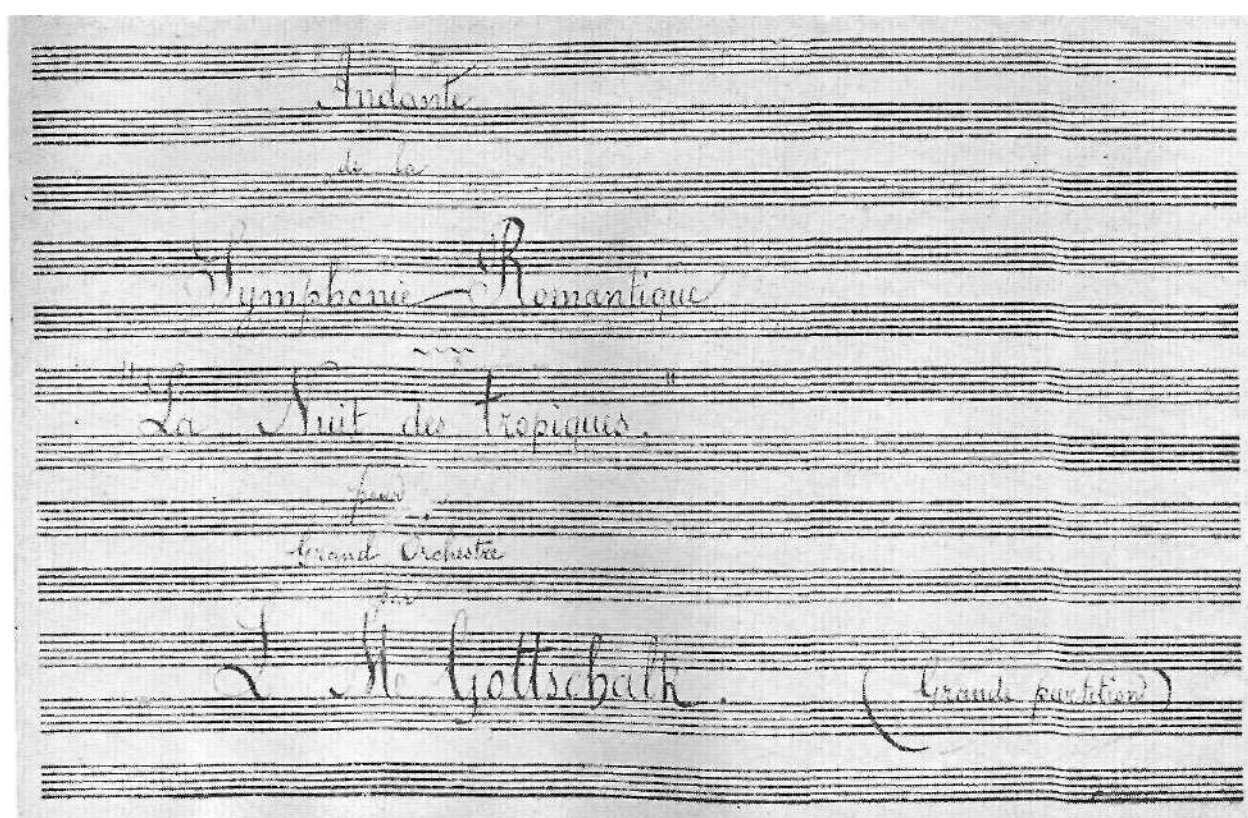 Andante
de la
Symphonie-Romantique
"La Nuit des tropiques."
pour
Grand Orchestre
par
L M Gottschalk. (Grande partition)